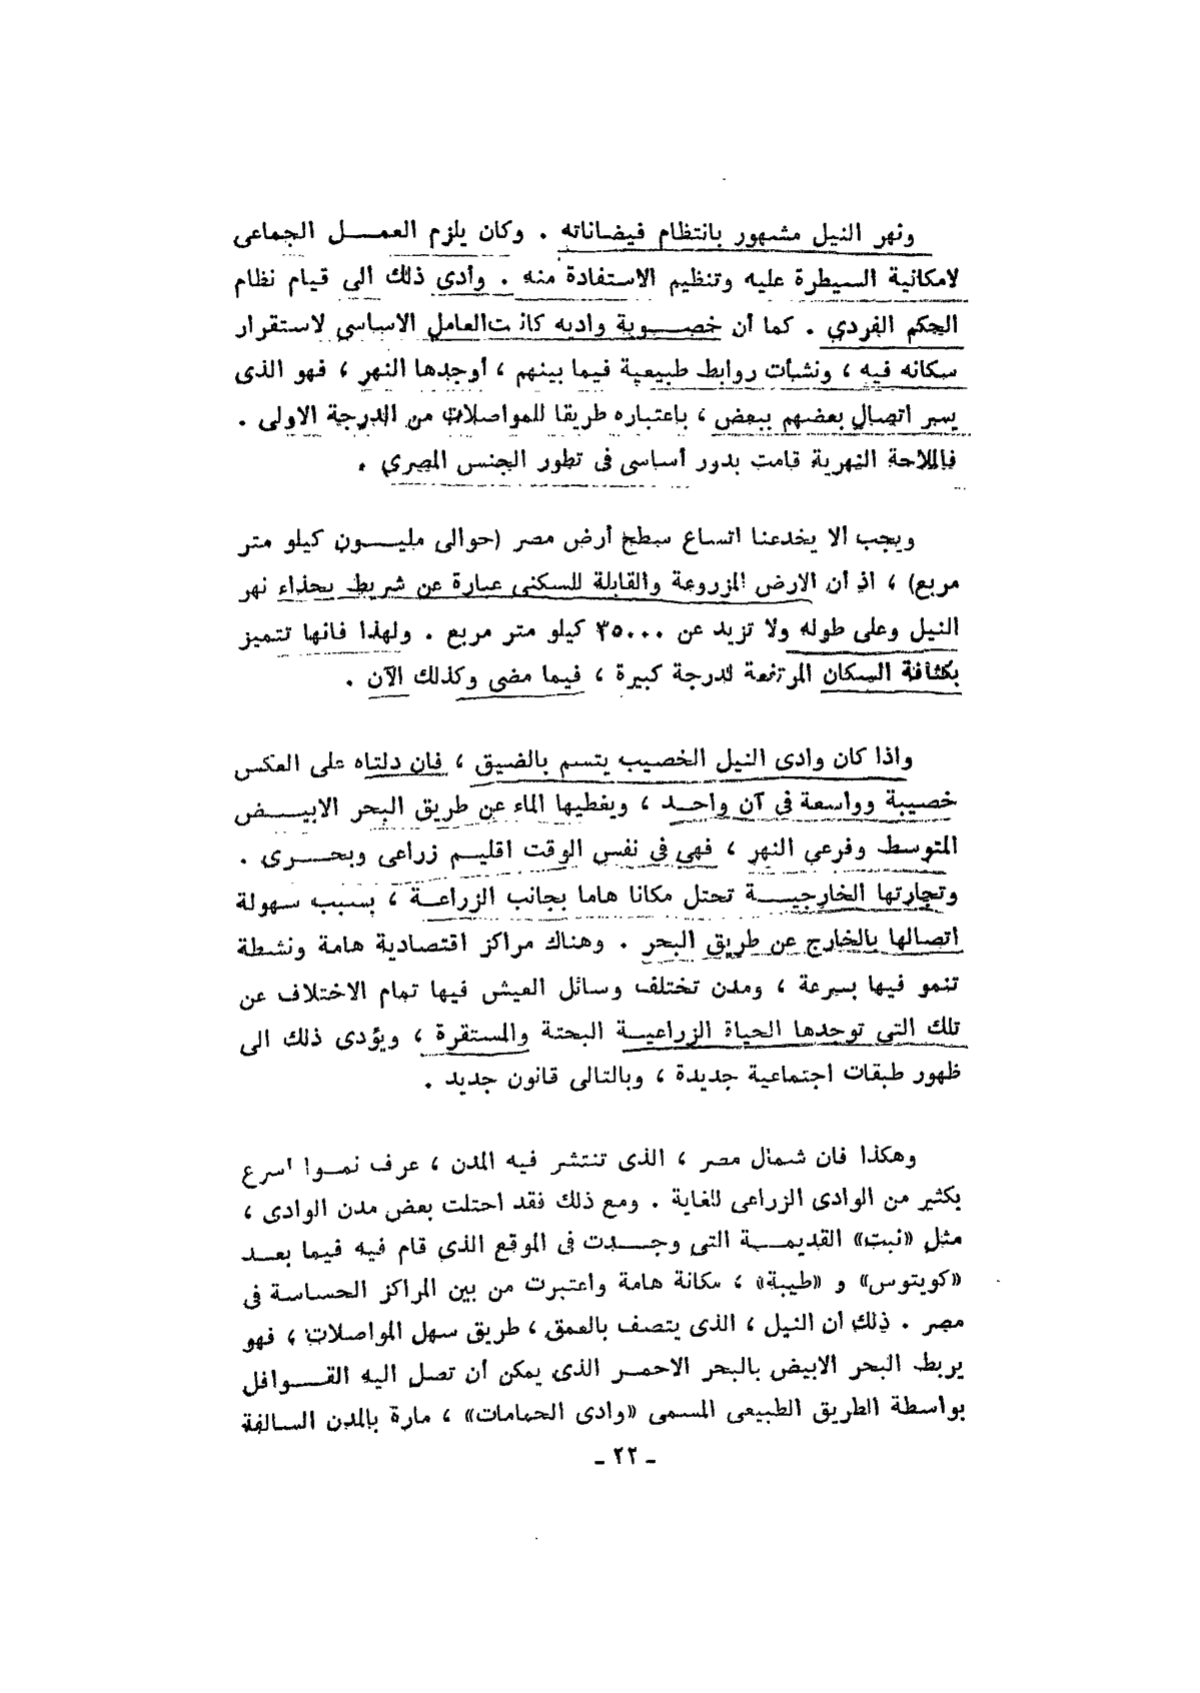 ونهر النيل مشهور بانتظام فيضاناته . وكان يلزم العمـــل الجماعى
لامكانية السيطرة عليه وتنظيم الاستفادة منه . وأدى ذلك الى قيام نظام
الحكم الفردي . كما أن خصـــوبة واديه كانت العامل الاساسى لاستقرار
سكانه فيه ، ونشأت روابط طبيعية فيما بينهم ، أوجدها النهر ، فهو الذى
يسر اتصال بعضهم ببعض ، باعتباره طريقا للمواصلات من الدرجة الاولى .
فالملاحة النهرية قامت بدور أساسى فى تطور الجنس المصرى .
ويجب ألا يخدعنا اتساع سطح أرض مصر (حوالى مليـــون كيلو متر
مربع) ، اذ أن الارض المزروعة والقابلة للسكنى عبارة عن شريط بحذاء نهر
النيل وعلى طوله ولا تزيد عن ٣٥٠٠٠ كيلو متر مربع . ولهذا فانها تتميز
بكثافة السكان المرتفعة لدرجة كبيرة ، فيما مضى وكذلك الآن .
واذا كان وادى النيل الخصيب يتسم بالضيق ، فان دلتاه على العكس
خصيبة وواسعة فى آن واحـــد ، ويغطيها الماء عن طريق البحر الابيـــض
المتوسط وفرعي النهر ، فهى فى نفس الوقت اقليـــم زراعى وبحـــرى .
وتجارتها الخارجيـــة تحتل مكانا هاما بجانب الزراعـــة ، بسبب سهولة
اتصالها بالخارج عن طريق البحر . وهناك مراكز اقتصادية هامة ونشطة
تنمو فيها بسرعة ، ومدن تختلف وسائل العيش فيها تمام الاختلاف عن
تلك التى توجدها الحياة الزراعيـــة البحتة والمستقرة ، ويؤدى ذلك الى
ظهور طبقات اجتماعية جديدة ، وبالتالى قانون جديد .
وهكذا فان شمال مصر ، الذى تنتشر فيه المدن ، عرف نمـــوا أسرع
بكثير من الوادى الزراعى للغاية . ومع ذلك فقد احتلت بعض مدن الوادى ،
مثل «نبت» القديمـــة التى وجـــدت فى الموقع الذي قام فيه فيما بعـــد
«كويتوس» و «طيبة» ، مكانة هامة واعتبرت من بين المراكز الحساسة فى
مصر . ذلك أن النيل ، الذى يتصف بالعمق ، طريق سهل المواصلات ، فهو
يربط البحر الابيض بالبحر الاحمـــر الذى يمكن أن تصل اليه القـــوافل
بواسطة الطريق الطبيعى المسمى «وادى الحمامات» ، مارة بالمدن السالفة
ـ ٢٢ ـ